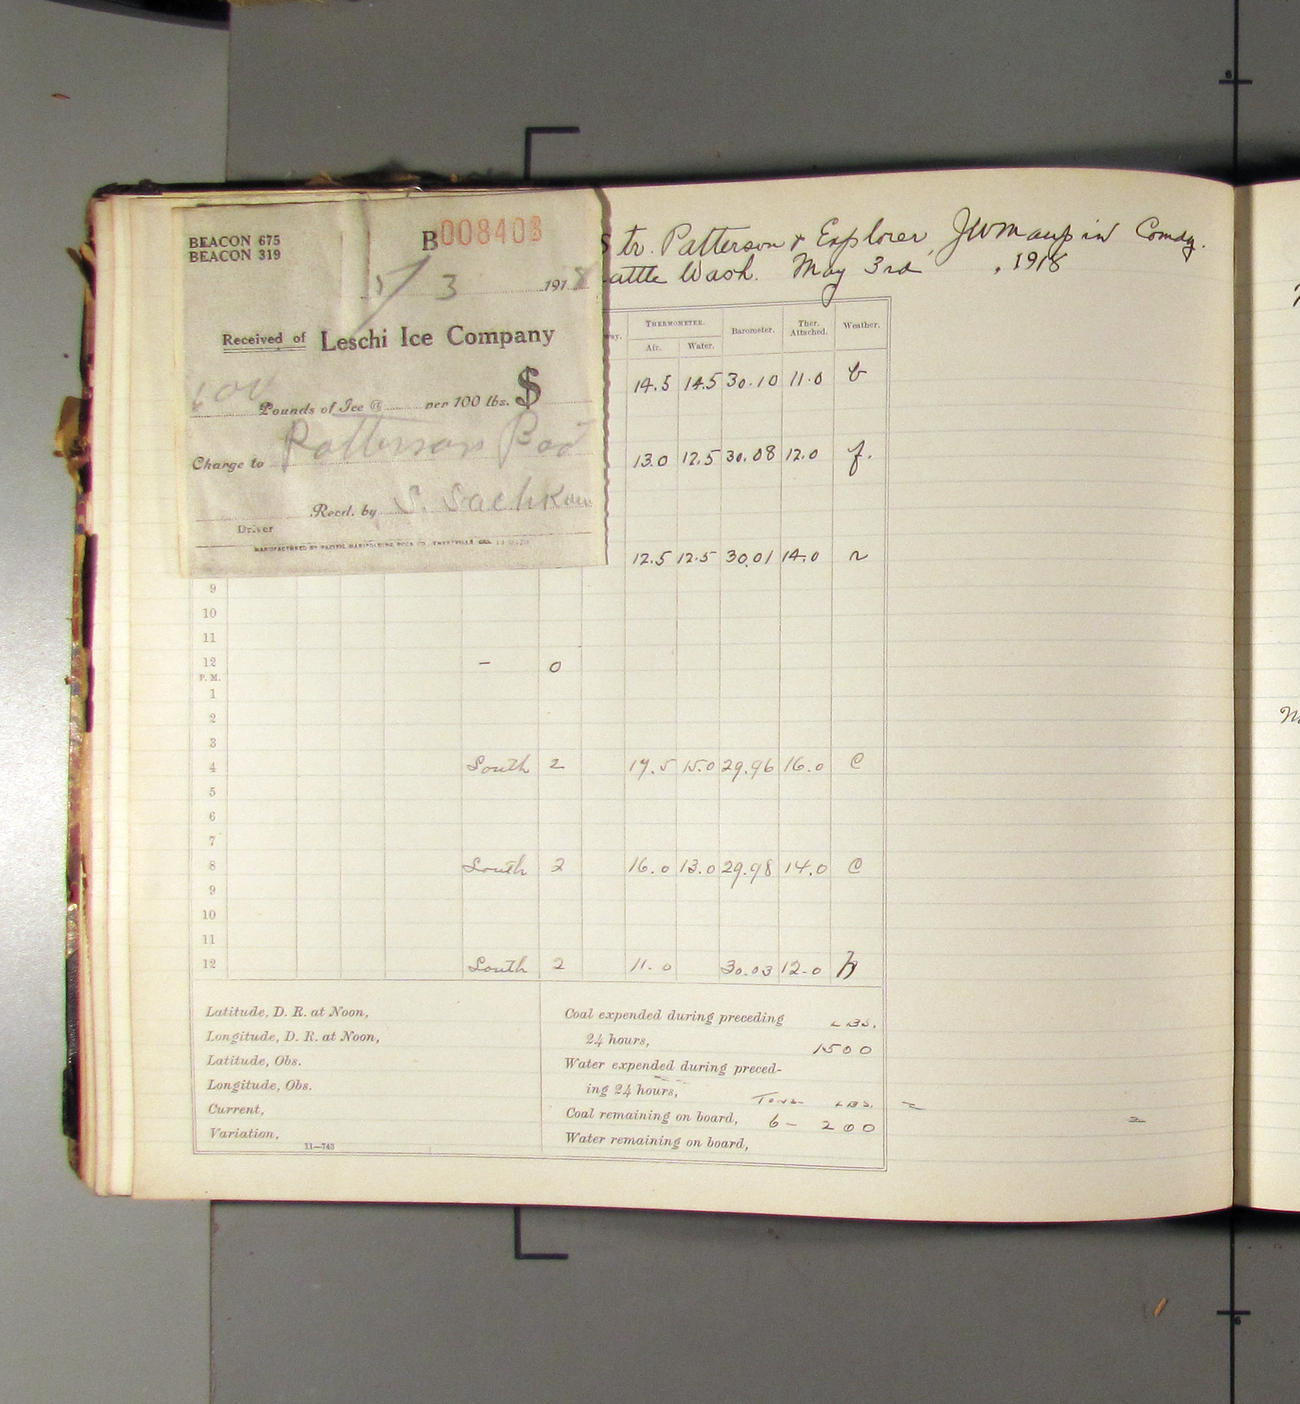 BEACON 675
BEACON 319
B008403
5/3 1918
Received of Leschi Ice Company
600 Pounds of Ice @ per 100 lbs. $
Charge to Patterson
Recd. by S.
Driver
Str. Patterson & Explorer, JWMaupin Comdg.
attle Wash. May 3rd, 1918
THERMOMETER. Barometer. Ther. Attached. Weather.
Air. Water.
14.5 14.5 30.10 11.0 b
13.0 12.5 30.08 12.0 f.
12.5 12.5 30.01 14.0 r
9
10
11
12 – 0
P. M.
1
2
3
4 South 2 17.5 15.0 29.96 16.0 c
5
6
7
8 South 2 16.0 13.0 29.98 14.0 c
9
10
11
12 South 2 11.0 30.03 12.0
Latitude, D. R. at Noon,
Longitude, D. R. at Noon,
Latitude, Obs.
Longitude, Obs.
Current,
Variation,
11—743
Coal expended during preceding LBS.
24 hours, 1500
Water expended during preced-
ing 24 hours,
Tons LBS.
Coal remaining on board, 6 – 200
Water remaining on board,
6
6